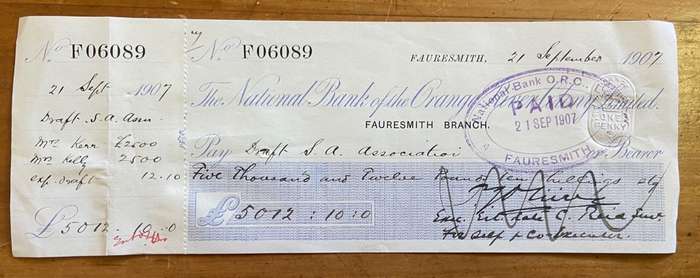 No F06089
21 Sept 1907
Draft S.A. Assn.
Mrs Kerr £2500
Mrs Kelly 2500
exp. draft 12.10
£5012 : 10 : 0
No F06089
FAURESMITH, 21 September 1907
The National Bank of the Orange River Colony Limited.
FAURESMITH BRANCH.
Pay Draft S. A. Association or Bearer
Five Thousand and Twelve Pounds ten shillings stg
£5012 : 10 : 0
Exec. Est. late C.
For self & Co-executor
National Bank O.R.C.
PAID
21 SEP 1907
FAURESMITH
PENNY